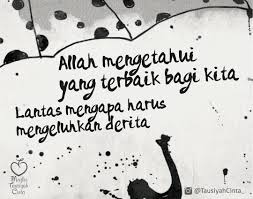 Allah mengetahui
yang terbaik bagi kita
Lantas mengapa harus
mengeluhkan derita
Tausiyah
Cinta
@TausiyahCinta_